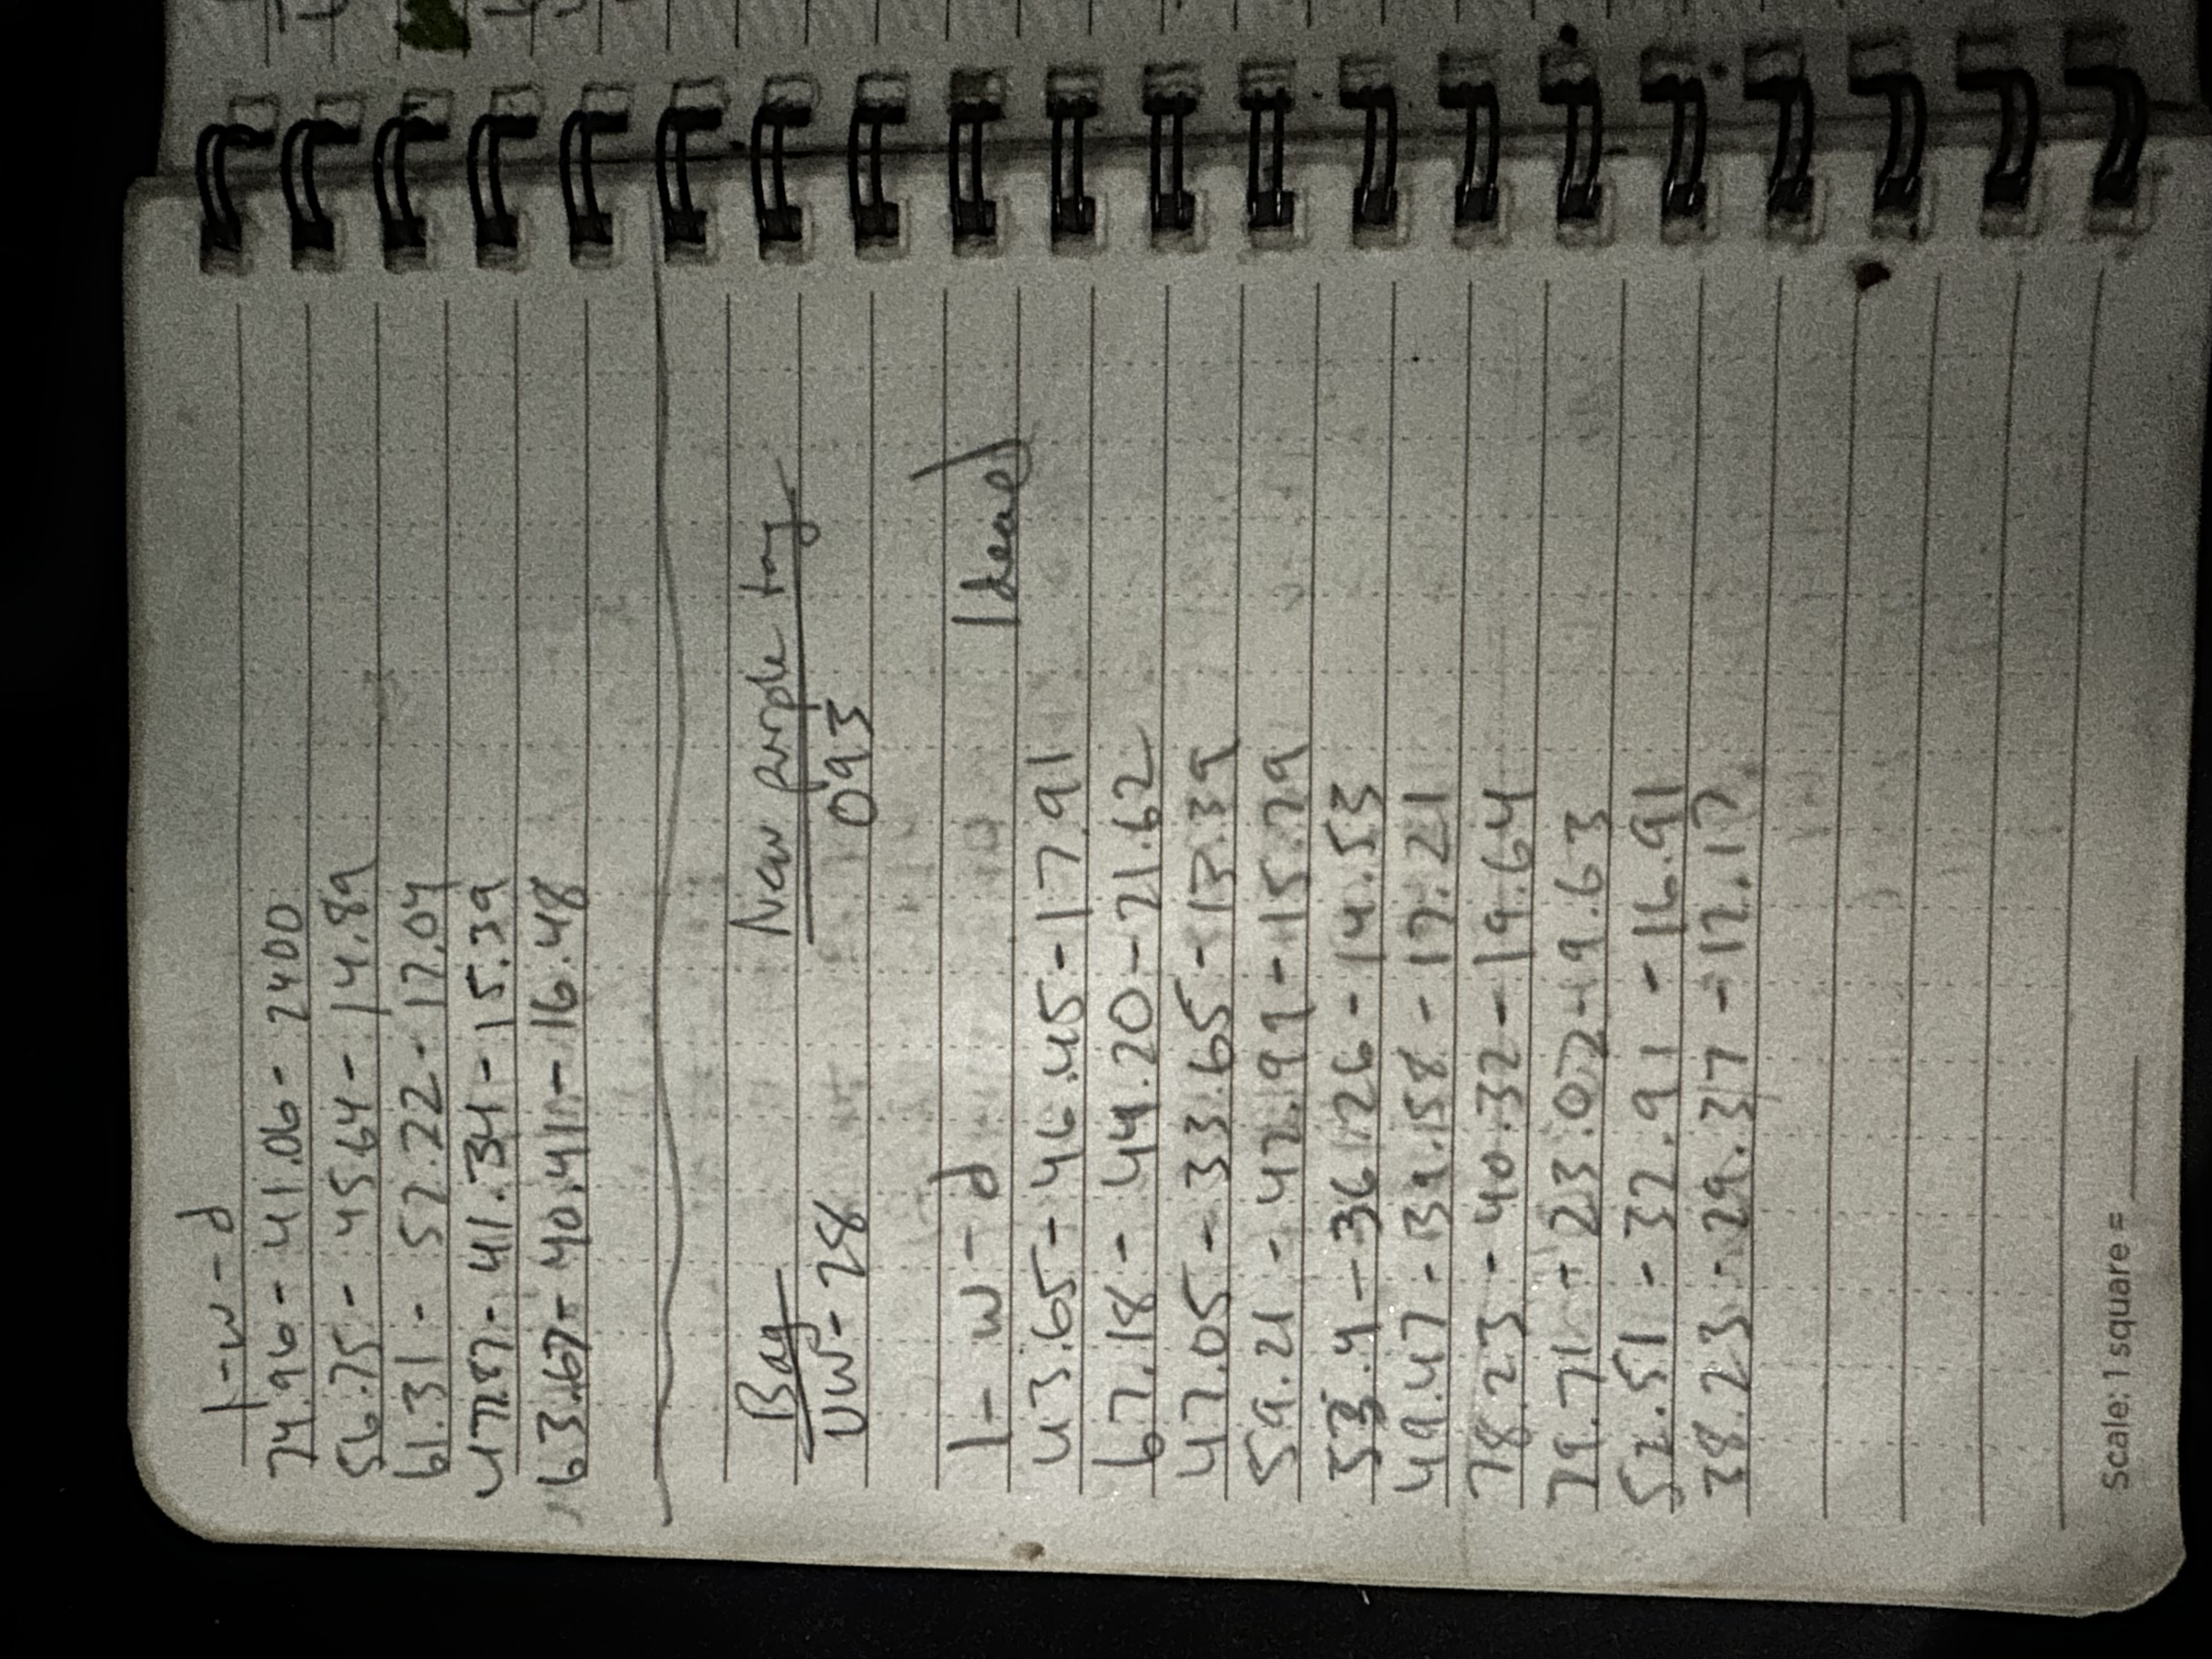 l-w-d
74.96 - 41.06 - 2400
56.75 - 45.64 - 14.89
61.31 - 52.22 - 17.04
47.87 - 41.34 - 15.39
63.67 - 40.41 - 16.48
Bag New purple tag
UW-28 093
l-w-d 1 dead
43.65 - 46.45 - 17.91
67.18 - 44.20 - 21.62
47.05 - 33.65 - 13.39
59.21 - 42.99 - 15.79
53.4 - 36.26 - 14.53
49.47 - 39.58 - 17.21
78.23 - 40.32 - 19.64
79.71 - 23.02 - 9.63
52.51 - 32.91 - 16.91
38.23 - 29.37 - 12.17
Scale: 1 square =